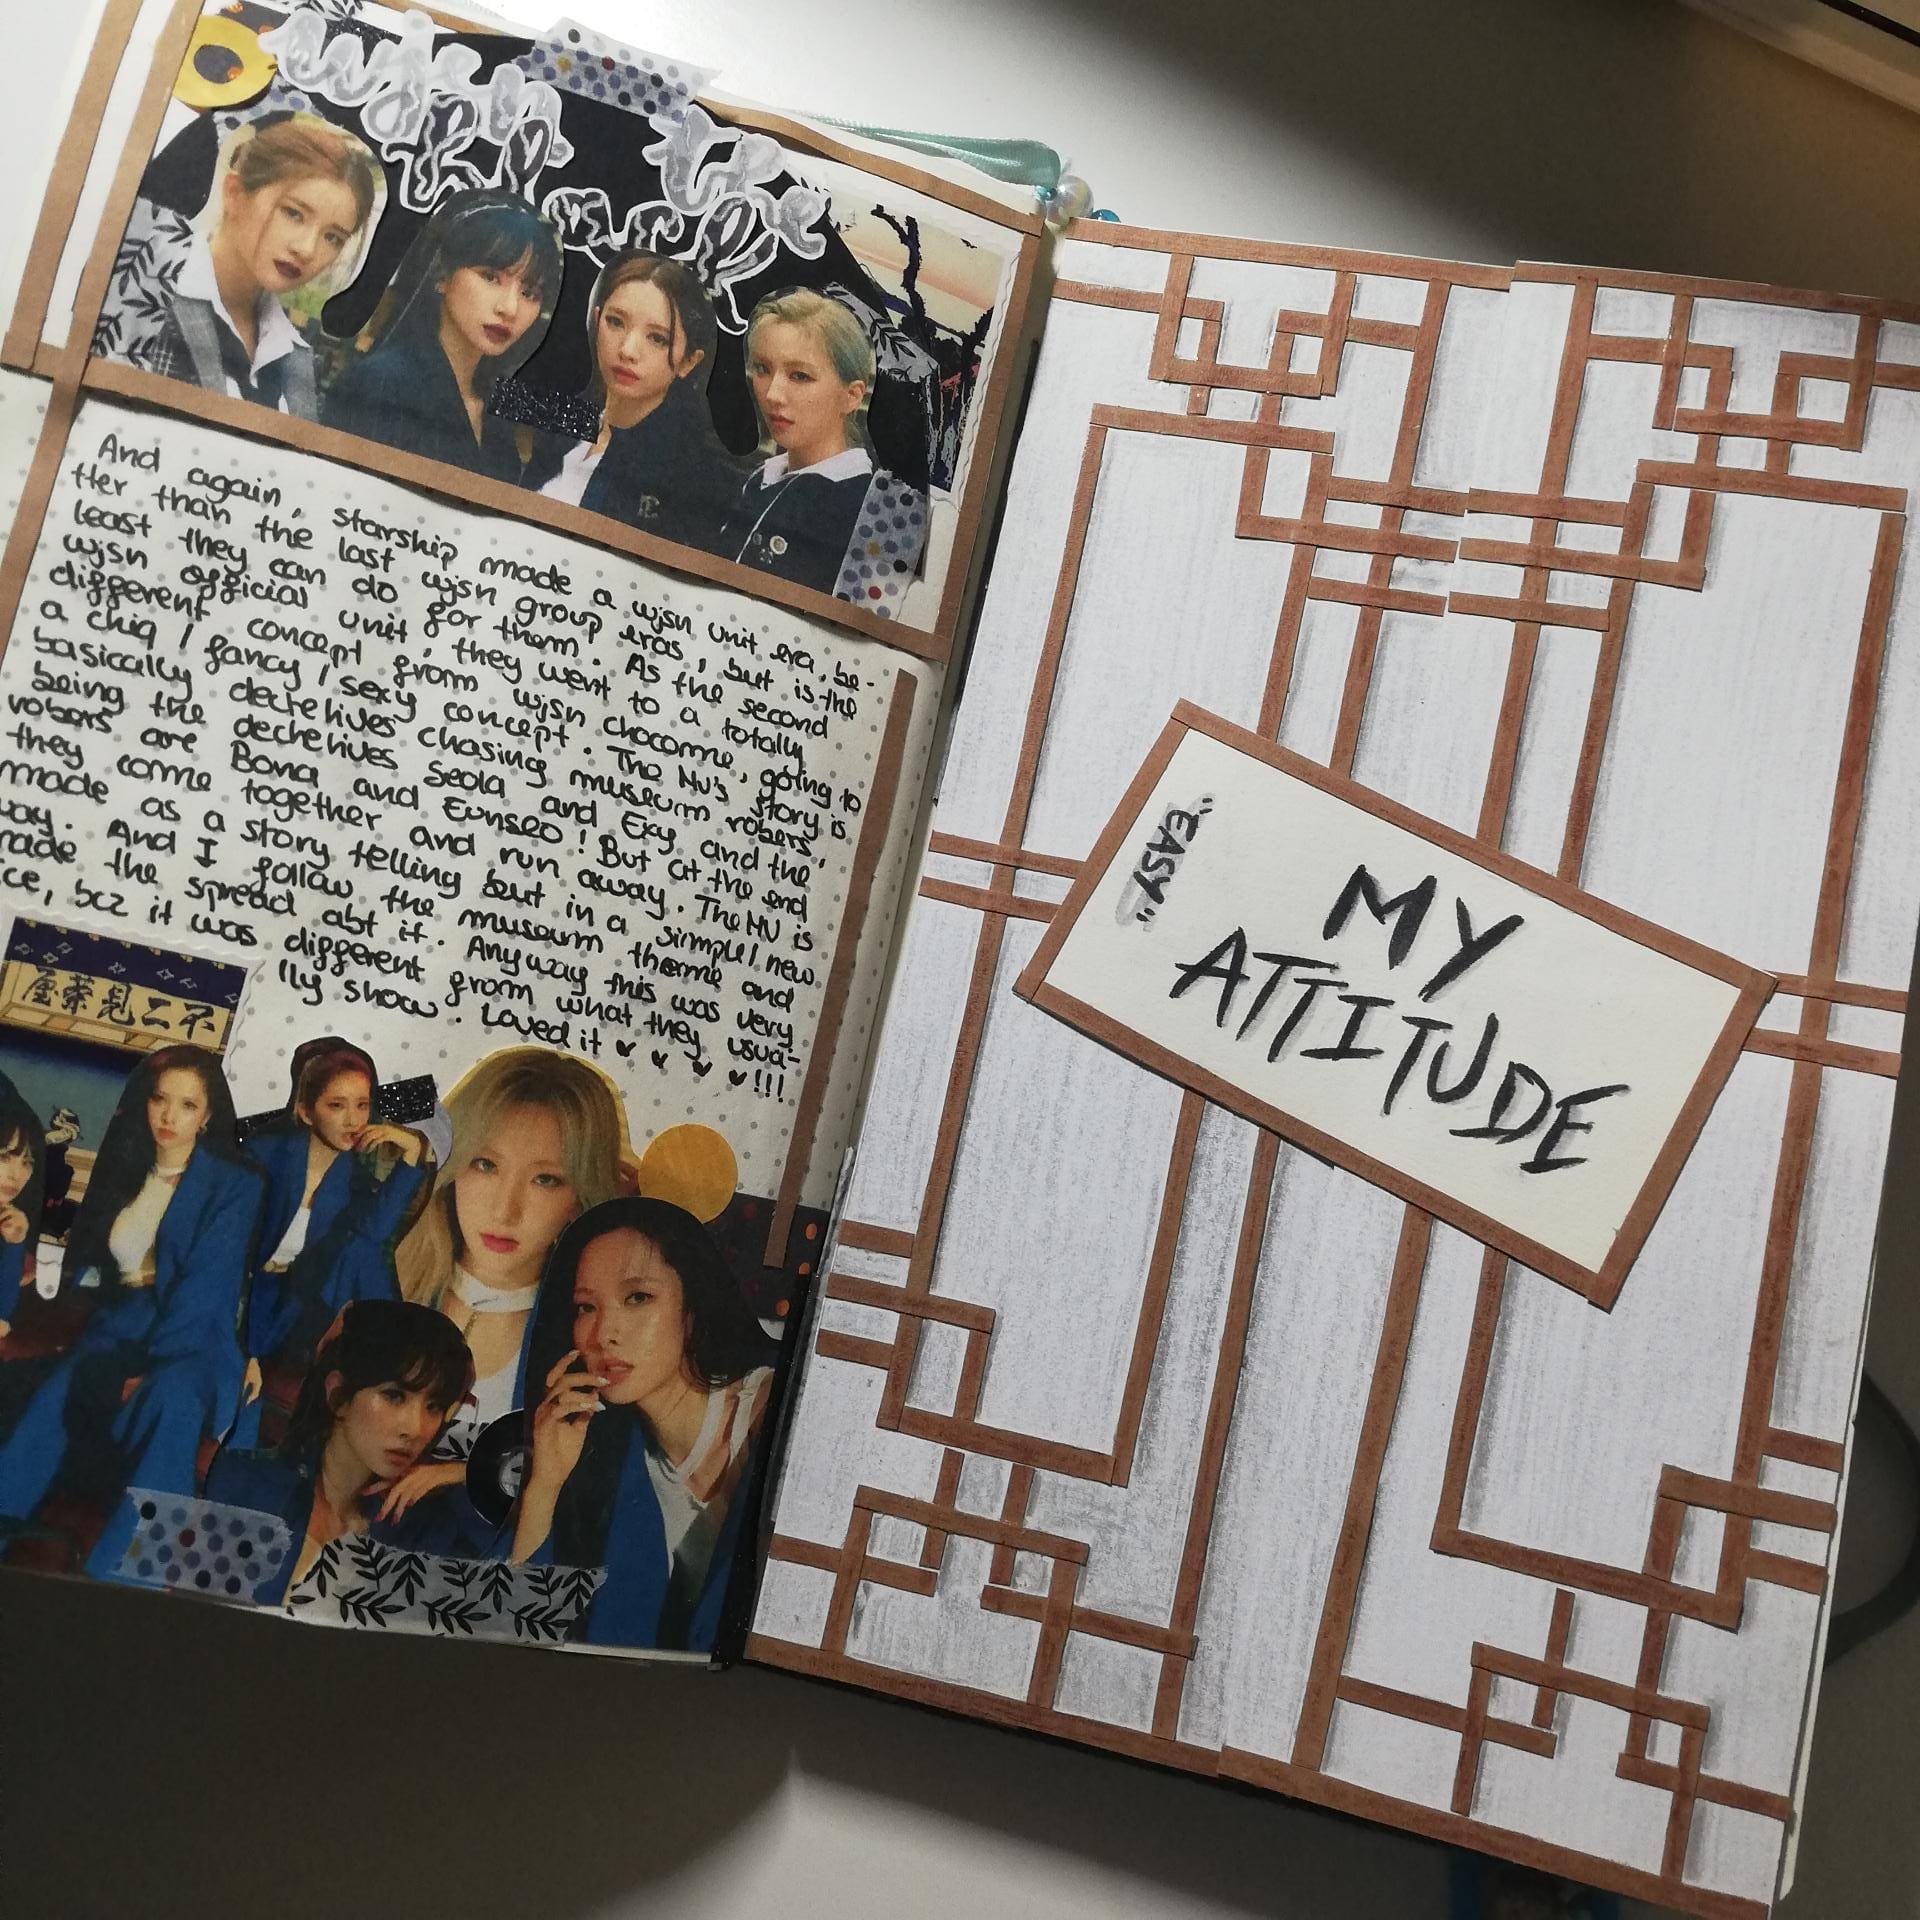 wjsn
the
black
And again, starship made a wjsn unit era be-
tter than the last wjsn group eras, but is the
least they can do for them. As the second
wjsn official unit, they went to a totally
different concept from wjsn chocome, going to
a chiq / fancy / sexy concept. The MV's story is
basically dectetives chasing museum robers,
being the dectetives Seola and Exy and the
robers are Bona and Eunseo! But at the end
they come together and run away. The MV is
made as a story telling but in a simpul new
way. And I follow the museum theme and
made the spread abt it. Anyway this was very
ce, bcz it was different from what they usua-
lly show. Loved it !!!
屋藥見二不
"EASY"
MY
ATTITUDE